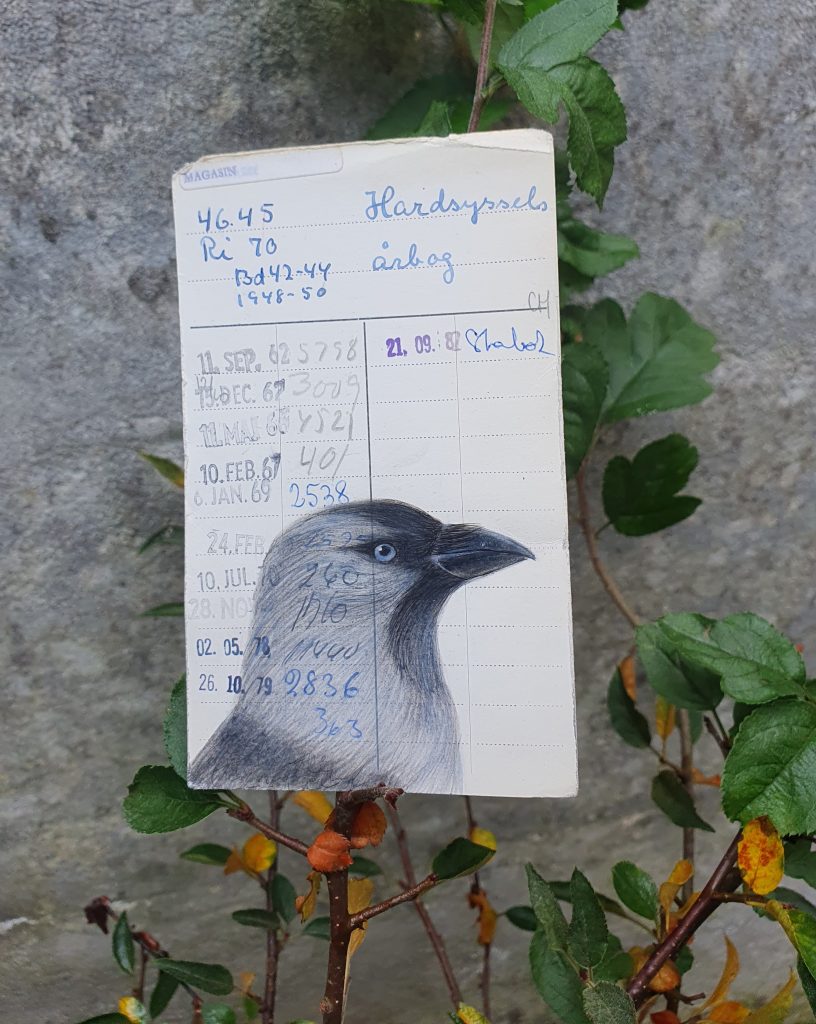 MAGASIN
46.45 Hardsyssels
Ri 70 årbog
Bd 42-44
1948-50
CH
11. SEP. 62 5798 21. 09. 82
DEC. 67 3009
11. 4521
10. FEB. 67 401
6. JAN. 69 2538
24. FEB.
10. JUL. 240
28. NOV
02. 05. 78
26. 10. 79 2836
363